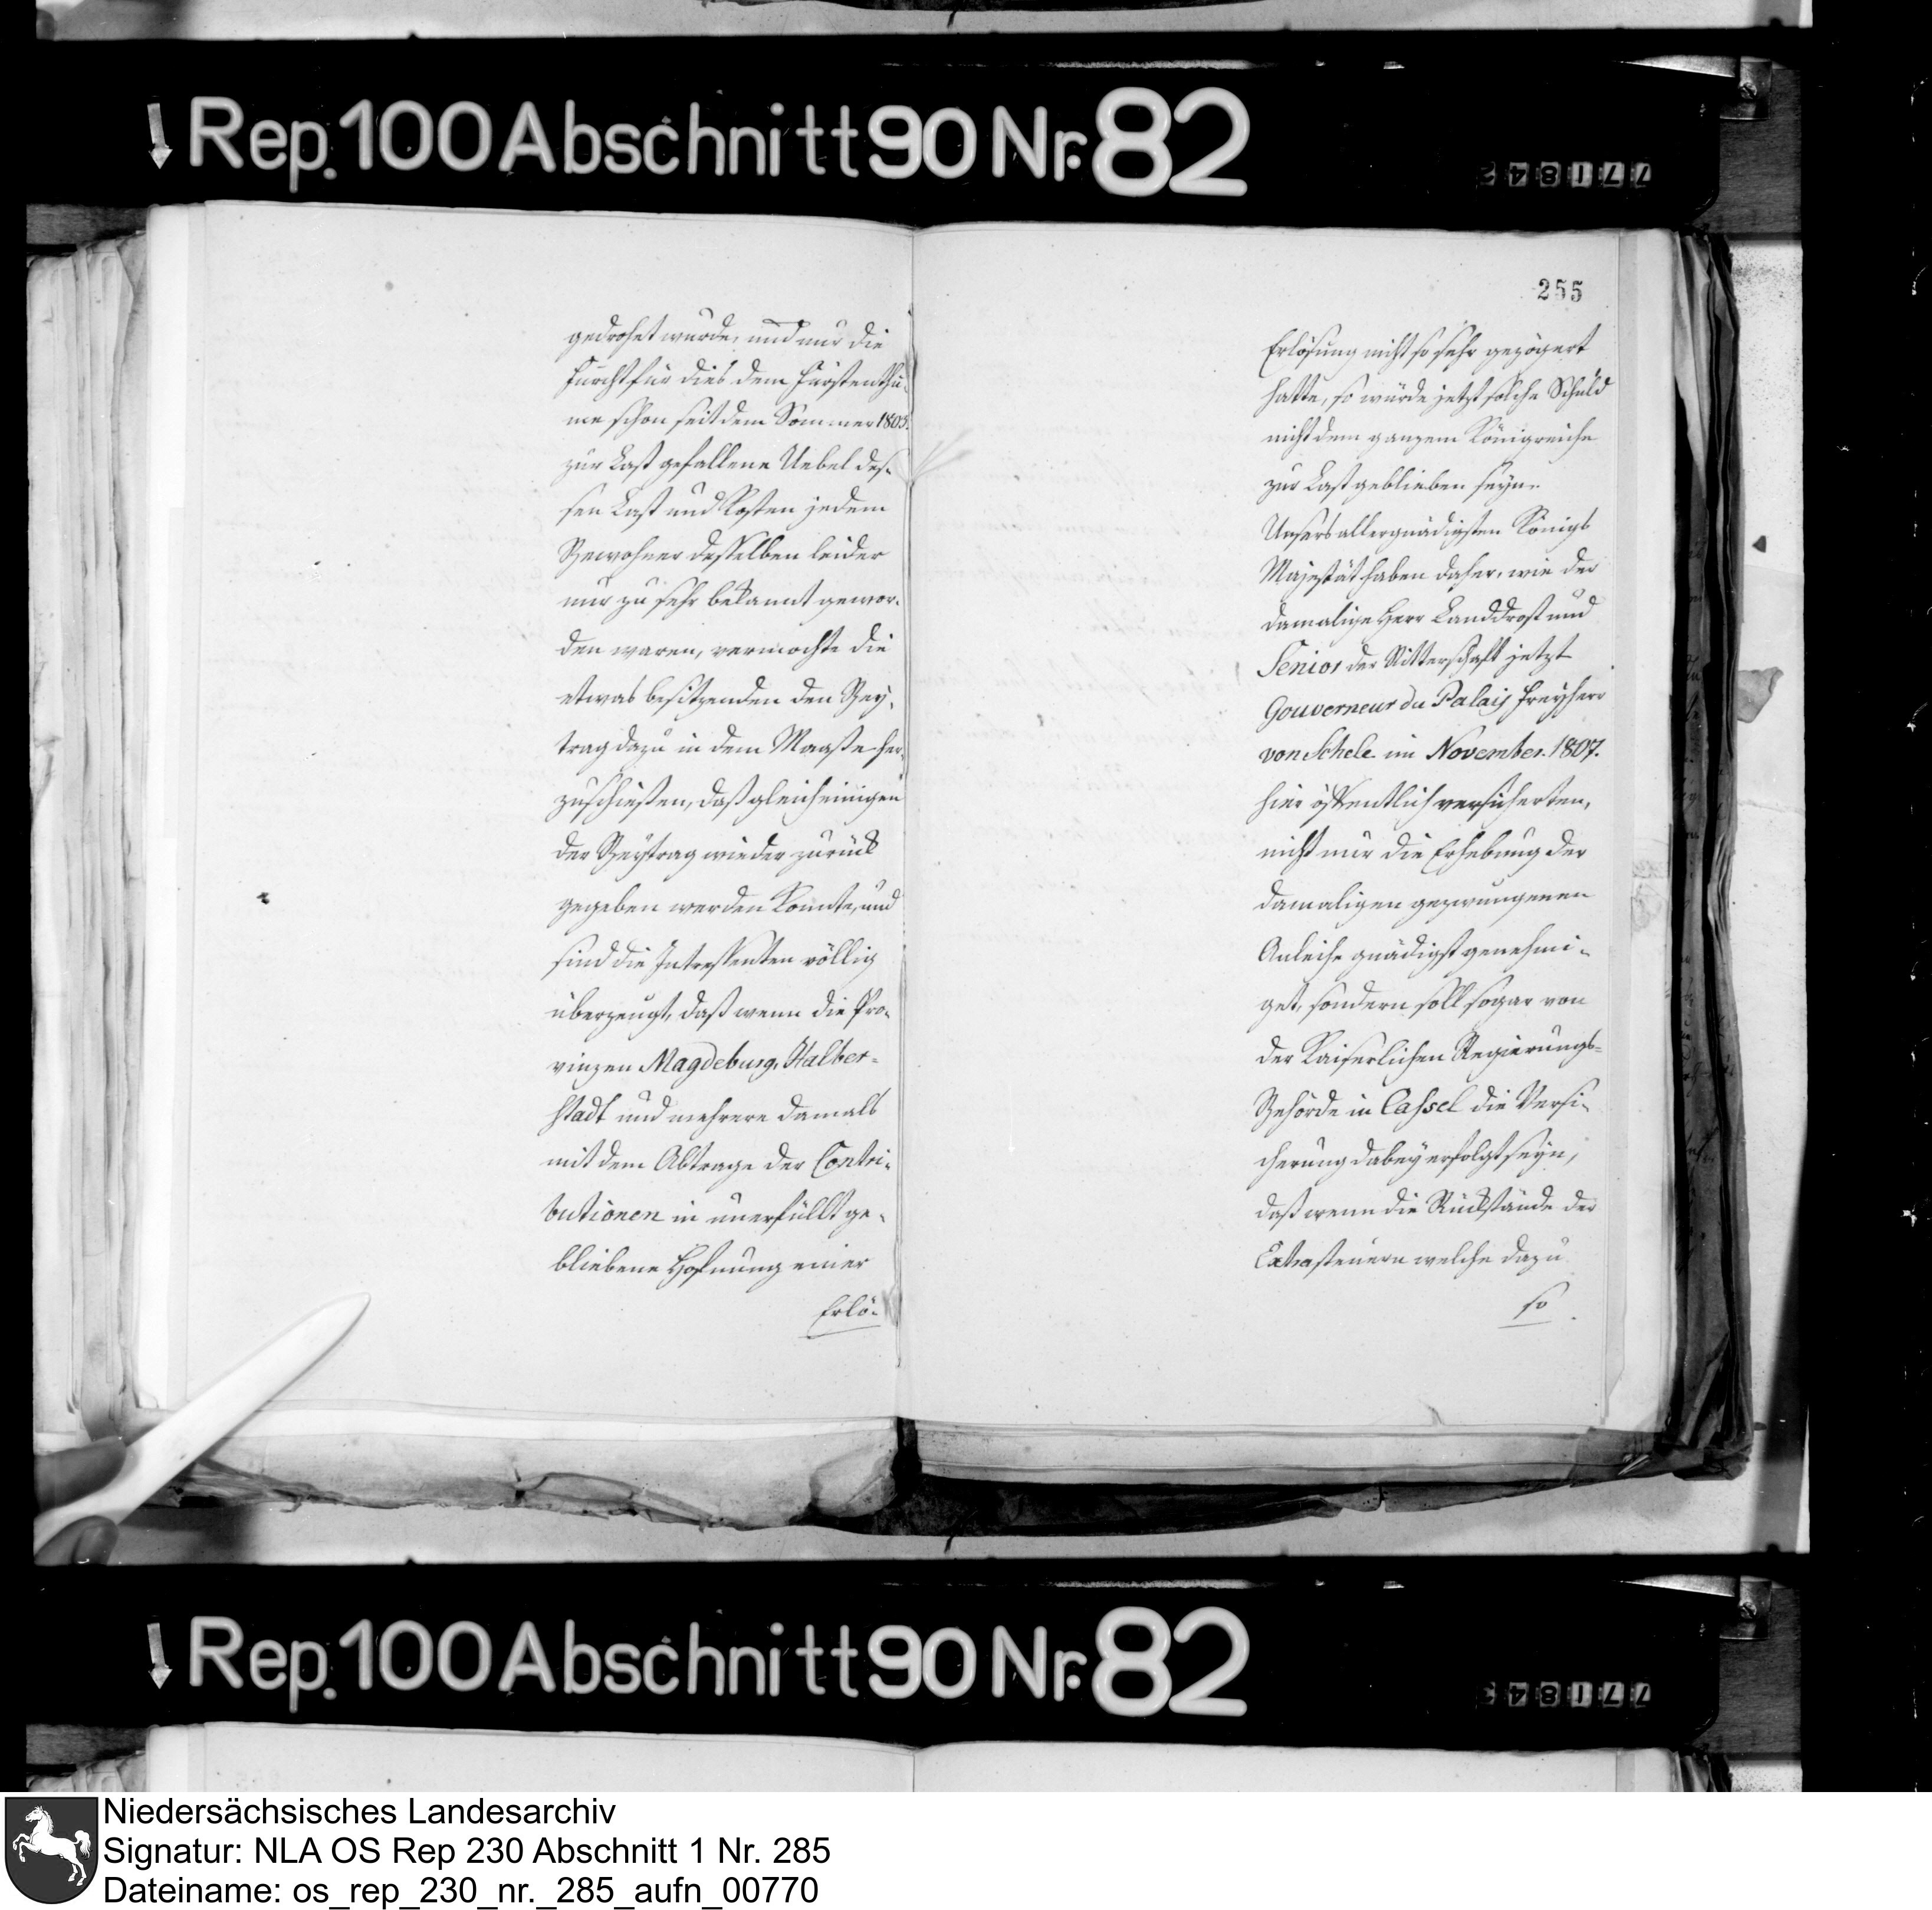 Rep. 100 Abschnitt 90 Nr. 82
771842
gedrohet wurde, und nur die
Furcht für dies dem Fürstenthu-
me schon seit dem Sommer 1803.
zur Last gefallene Uebel des-
sen Last und Kosten jedem
Bewohner desselben leider
nur zu sehr bekannt gewor-
den waren, vermochte die
etwas besitzenden den Bey-
trag dazu in dem Maaße her-
zuschießen, daß gleich einigen
der Beytrag wieder zurück
gegeben werden konnte, und
sind die Intressenten völlig
überzeugt, daß wenn die Pro-
vinzen Magdeburg, Halber-
stadt und mehrere damals
mit dem Abtrage der Contri-
butionen in unerfüllt ge-
bliebene Hofnung einer
Erlö-
255
Erlösung nicht so sehr gezögert
hatte, so würde jetzt solche Schuld
nicht dem ganzem Königreiche
zur Last geblieben seyn.
Unsers allergnädigsten Königs
Majestät haben daher, wie der
damalige Herr Landdrost und
Senior der Ritterschaft jetzt
Gouverneur du Palais Freyherr
von Schele im November 1807.
hier öffentlich versicherten,
nicht nur die Erhebung der
damaligen gezwungenen
Anleihe gnädigst genehmi-
get, sondern soll sogar von
der Kaiserlichen Regierungs-
Behörde in Cassel die Versi-
cherung dabey erfolgt seyn,
daß wenn die Rückstände der
Extrasteuern welche dazu
so
Rep. 100 Abschnitt 90 Nr. 82
77184
Niedersächsisches Landesarchiv
Signatur: NLA OS Rep 230 Abschnitt 1 Nr. 285
Dateiname: os_rep_230_nr._285_aufn_00770